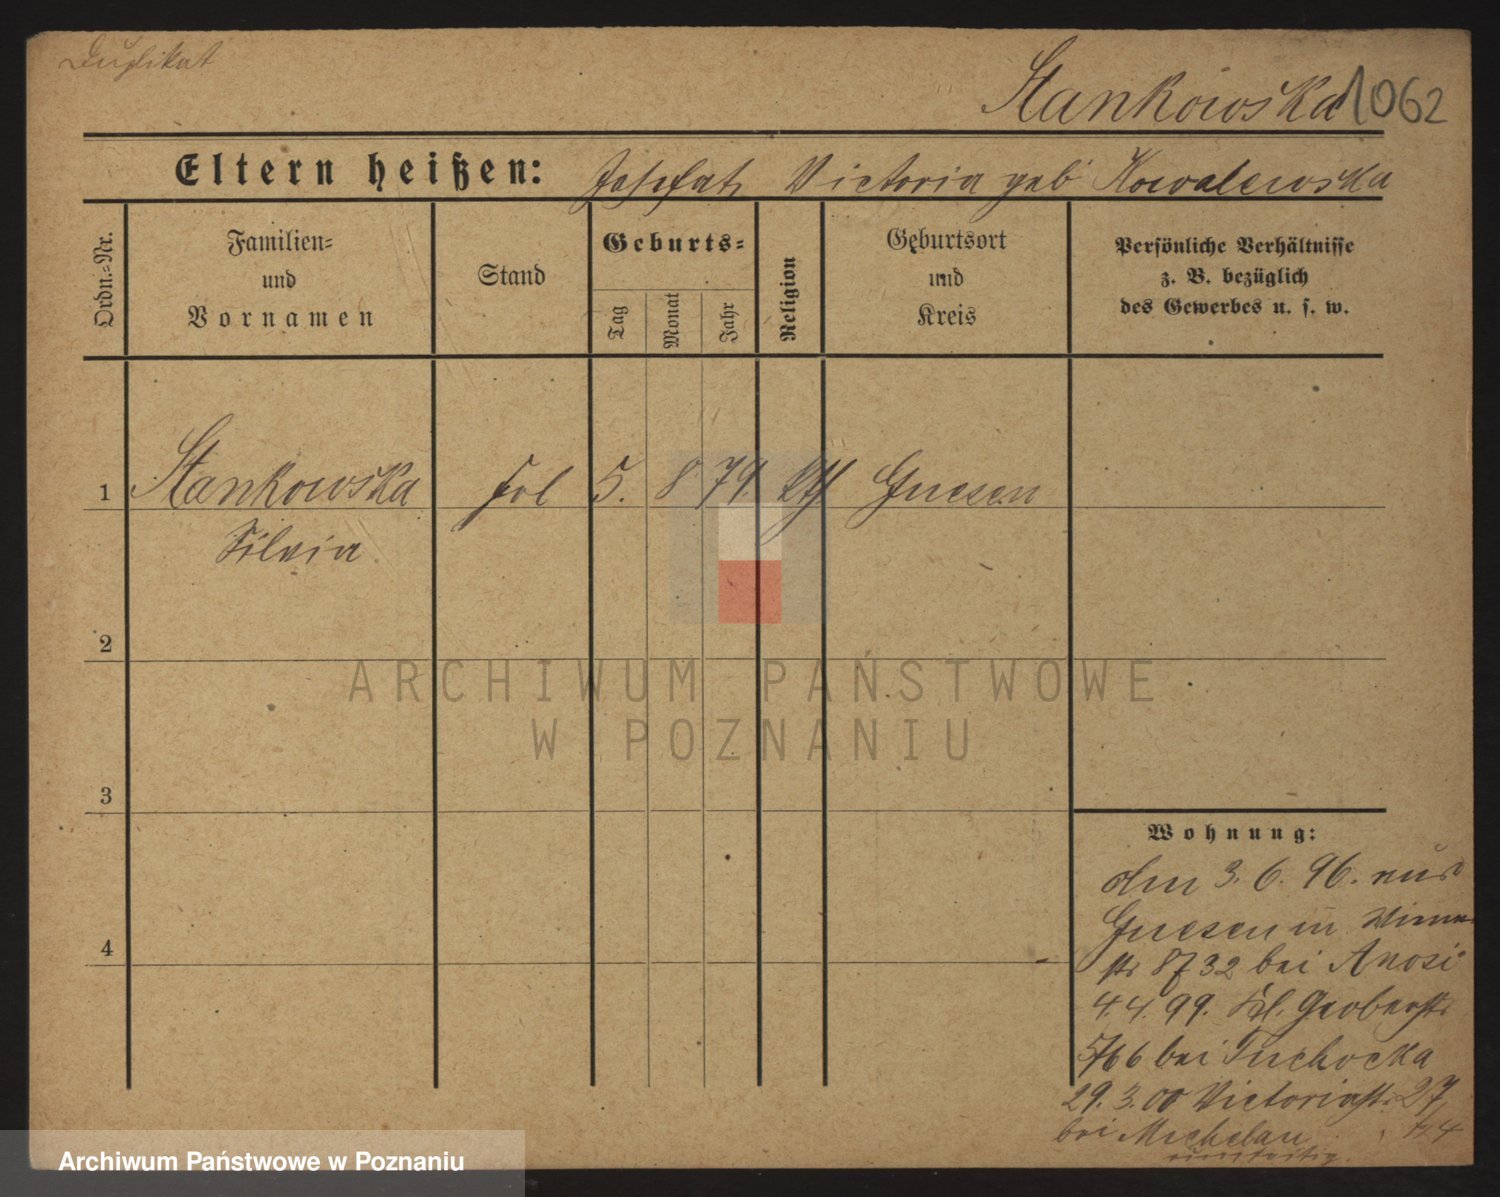 Duplikat
Stankowska 1062
Eltern heißen: Josefat, Victoria geb Kowalewska
Ordn.-Nr.
Familien-
und
Vornamen
Stand
Geburts-
Tag
Monat
Jahr
Religion
Geburtsort
und
Kreis
Persönliche Verhältnisse
z. B. bezüglich
des Gewerbes u. s. w.
1 Stankowska 5. 8 79. Gnesen
Silvia
2
3
4
Wohnung:
den 3. 6. 96. aus
Gnesen in
32 bei
4. 4. 99. Kl. Gerberstr
bei Tuchocka
29. 3. 00 Victoriastr. 27
bei
ARCHIWUM PAŃSTWOWE
W POZNANIU
Archiwum Państwowe w Poznaniu